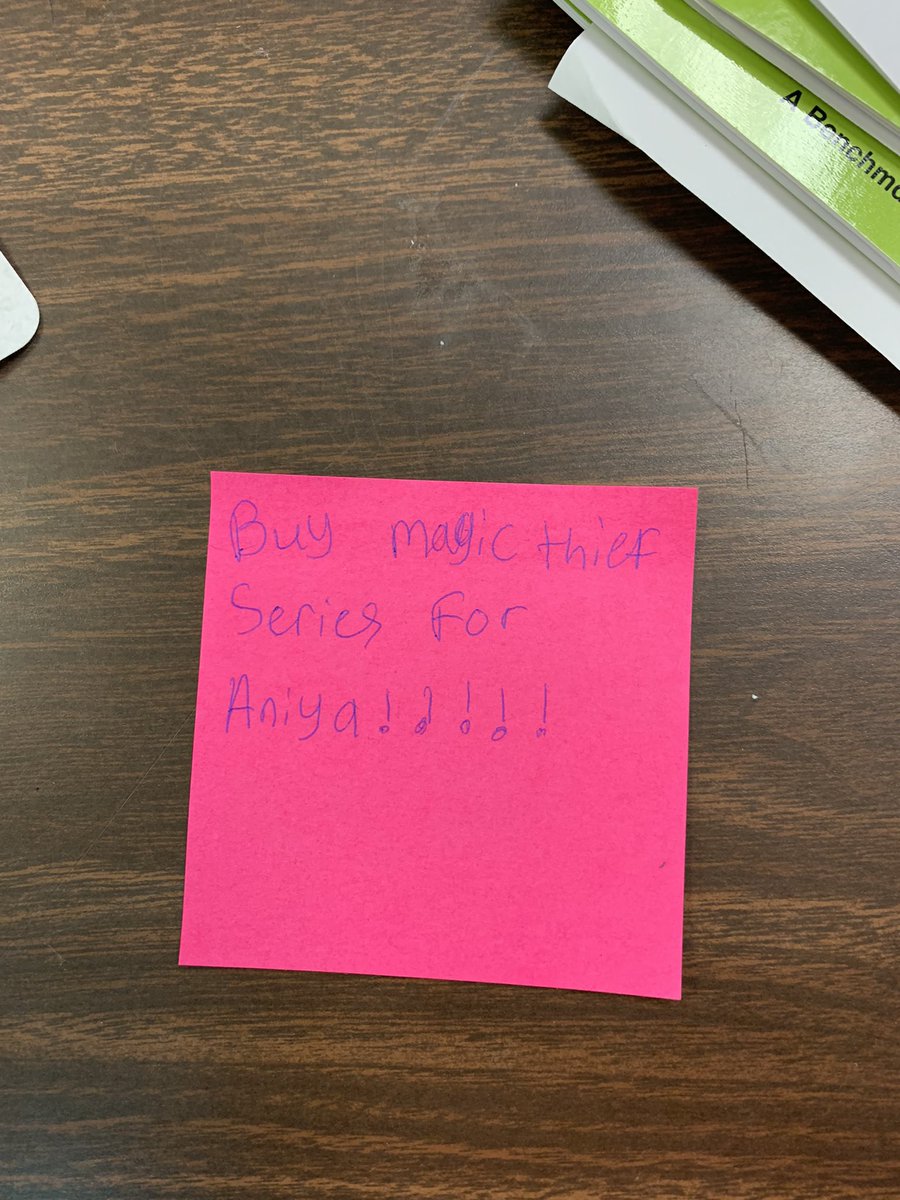 A Benchma
Buy magic thief
Series For
Aniya!!!!!